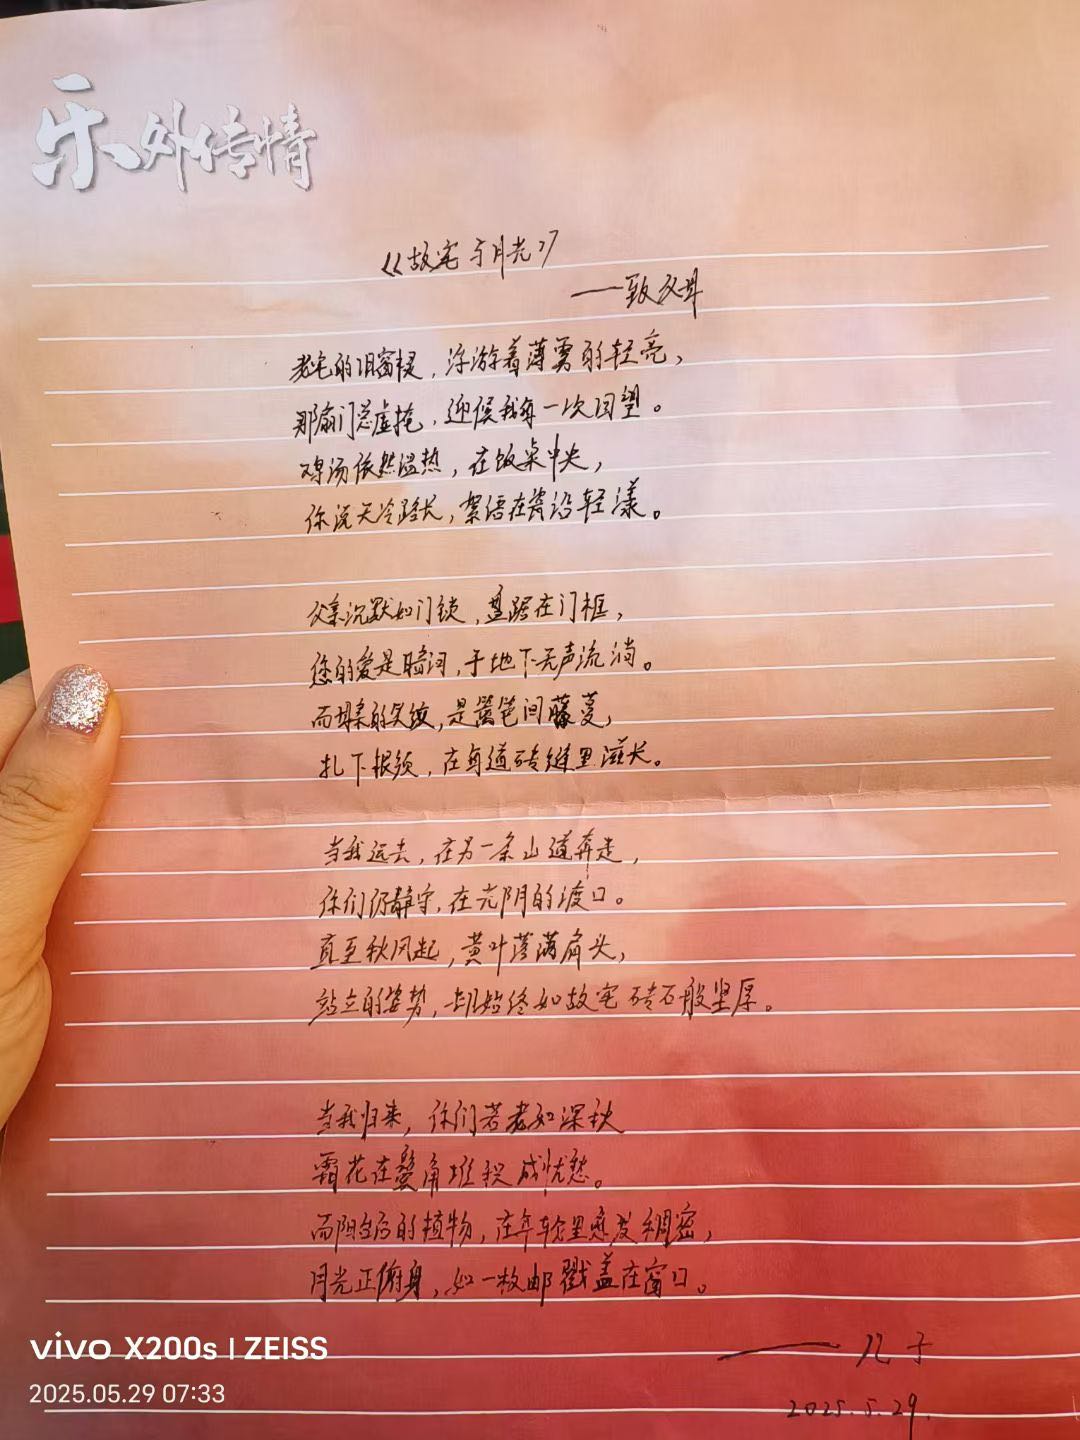 乐外传情
《故宅与月光》
——致父母
老宅的旧窗棂，浮游着薄雾的轻亮，
那扇门总虚掩，迎候我每一次回望。
鸡汤依然温热，在饭桌中央，
你说天冷路长，絮语在瓷沿轻漾。
父亲沉默如门锁，盘踞在门框，
您的爱是暗河，于地下无声流淌。
而母亲的笑纹，是篱笆间藤蔓，
扎下根须，在每道砖缝里滋长。
当我远去，在另一条山道奔走，
你们仍静守，在光阴的渡口。
直至秋风起，黄叶落满肩头，
站立的姿势，却始终如故宅砖石般坚厚。
当我归来，你们若老如深秋
霜花在鬓角堆积成忧愁。
而阳台的植物，在年轮里愈发稠密，
月光正俯身，如一枚邮戳盖在窗口。
——儿子
2025.5.29.
vivo X200s | ZEISS
2025.05.29 07:33